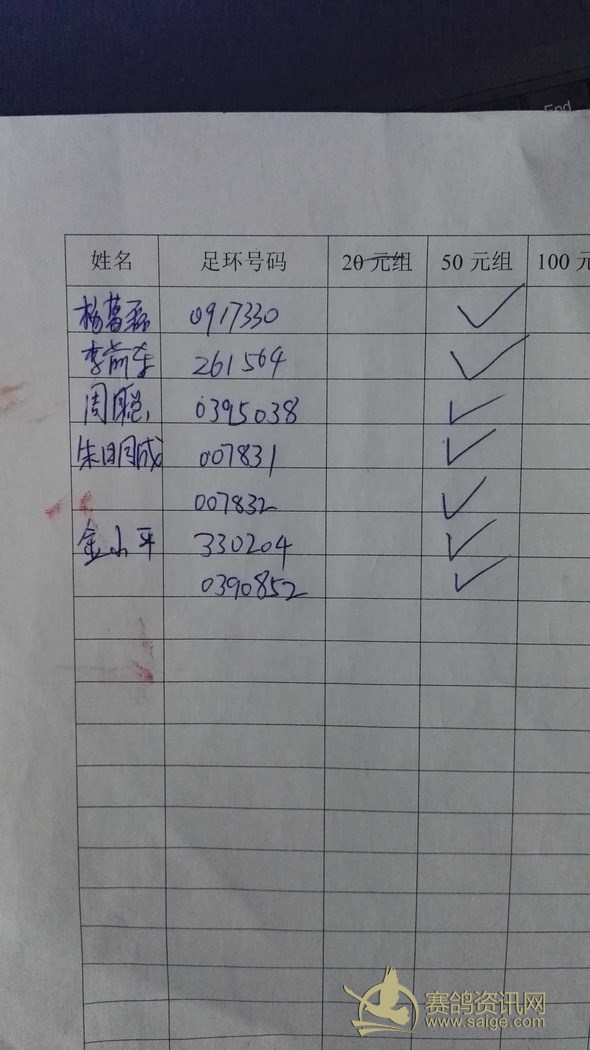 End
姓名 足环号码 20元组 50元组 100元
0917330 ✓
李前东 261564 ✓
周聪 0395038 ✓
朱明成 007831 ✓
007832 ✓
金小平 330204 ✓
0390852 ✓
赛鸽资讯网
www.saige.com